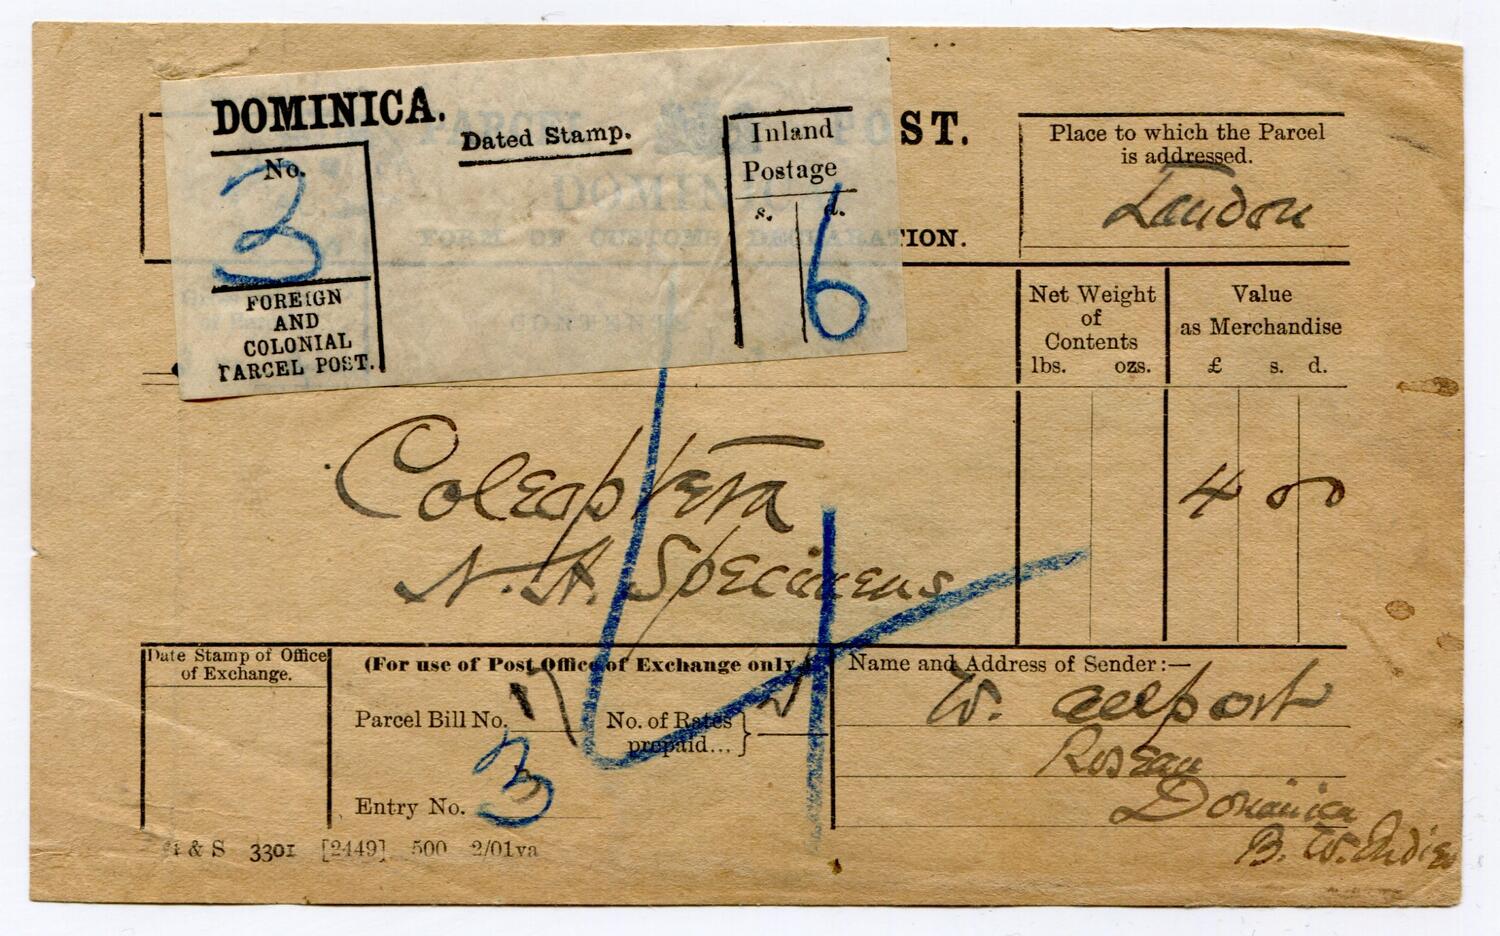 DOMINICA.
No.
3
FOREIGN
AND
COLONIAL
PARCEL POST.
Dated Stamp.
Inland
Postage
s. d.
6
PARCEL POST.
DOMINICA
FORM OF CUSTOMS DECLARATION.
CONTENTS
Place to which the Parcel
is addressed.
London
Net Weight
of
Contents
lbs. ozs.
Value
as Merchandise
£ s. d.
Coleoptera
N. H. Specimens
4 0 0
4
Date Stamp of Office
of Exchange.
(For use of Post Office of Exchange only.)
Parcel Bill No.
No. of Rates
prepaid...
Entry No. 3
Name and Address of Sender:—
W. Allport
Roseau
Dominica
B. W. Indies
& S 3301 [2449] 500 2/01va